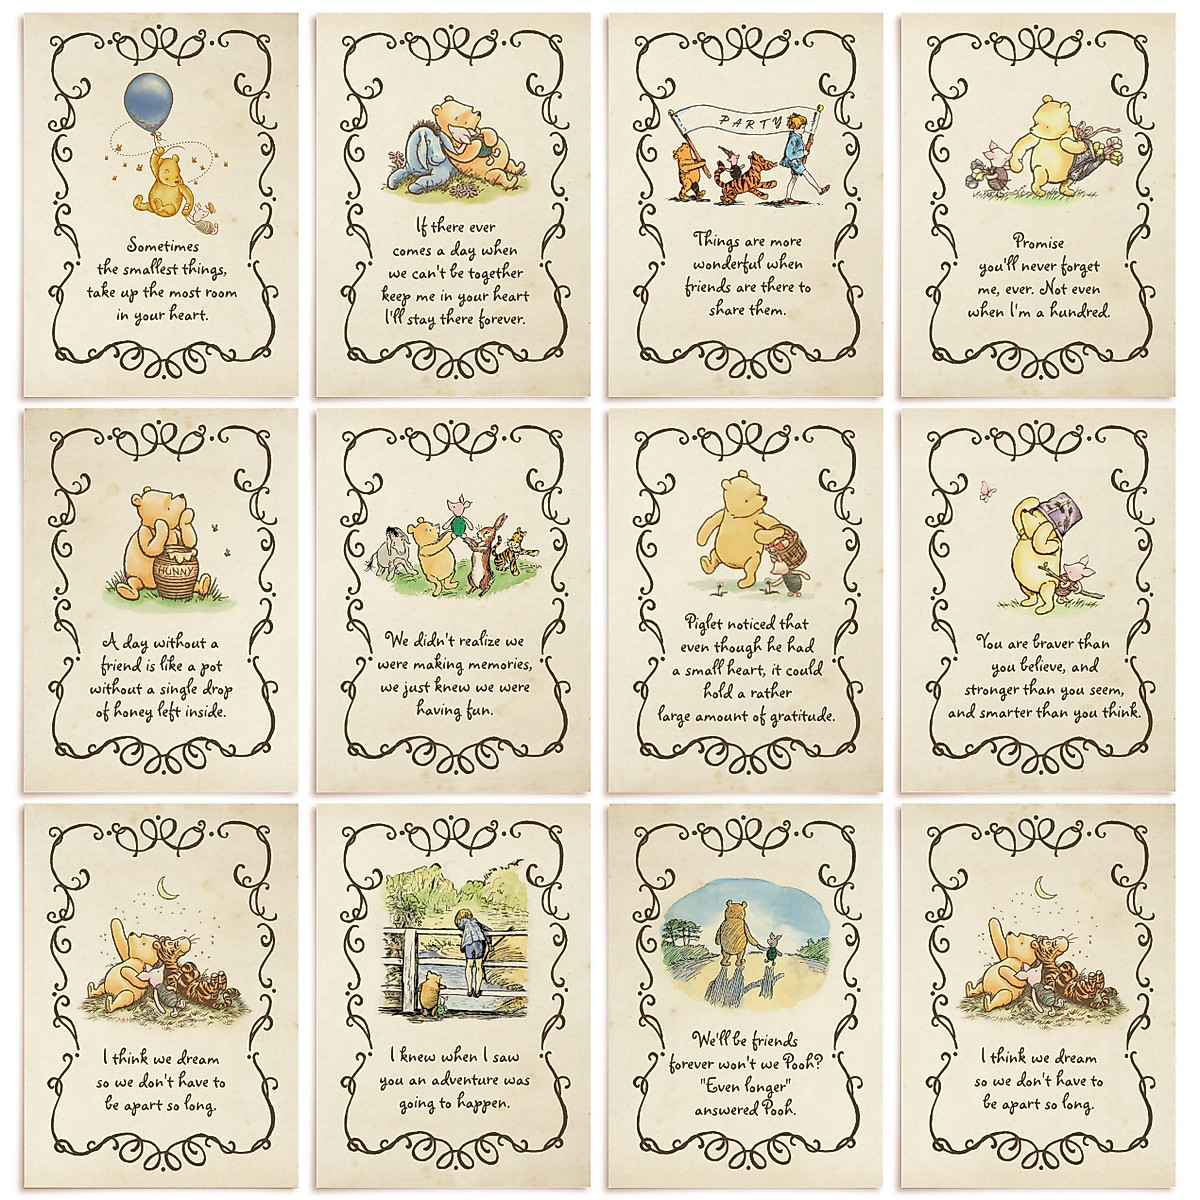 Sometimes
the smallest things,
take up the most room
in your heart.
If there ever
comes a day when
we can't be together
keep me in your heart
I'll stay there forever.
PARTY
Things are more
wonderful when
friends are there to
share them.
Promise
you'll never forget
me, ever. Not even
when I'm a hundred.
HUNNY
A day without a
friend is like a pot
without a single drop
of honey left inside.
We didn't realize we
were making memories,
we just knew we were
having fun.
Piglet noticed that
even though he had
a small heart, it could
hold a rather
large amount of gratitude.
You are braver than
you believe, and
stronger than you seem,
and smarter than you think.
I think we dream
so we don't have to
be apart so long.
I knew when I saw
you an adventure was
going to happen.
We'll be friends
forever won't we Pooh?
"Even longer"
answered Pooh.
I think we dream
so we don't have to
be apart so long.